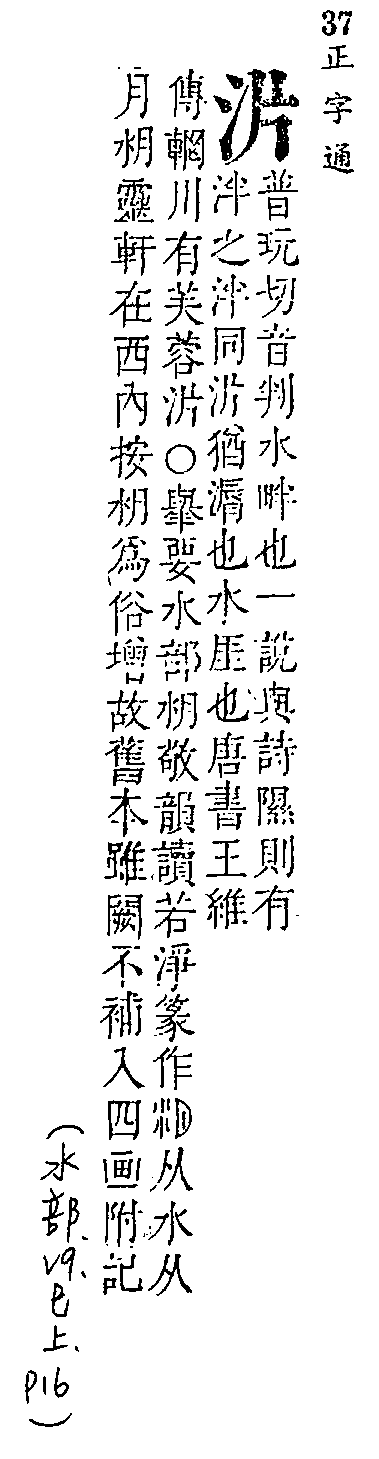 37正字通
沜
普玩切音判水畔也一說與詩隰則有
泮之泮同沜猶漘也水厓也唐書王維
傳輞川有芙蓉沜○舉要水部⿰水月敬韻讀若淨篆作⿰水月从水从
月⿰水月靈軒在西內按⿰水月爲俗增故舊本雖闕不補入四画附記
(水部. V9. 巳上. P16)